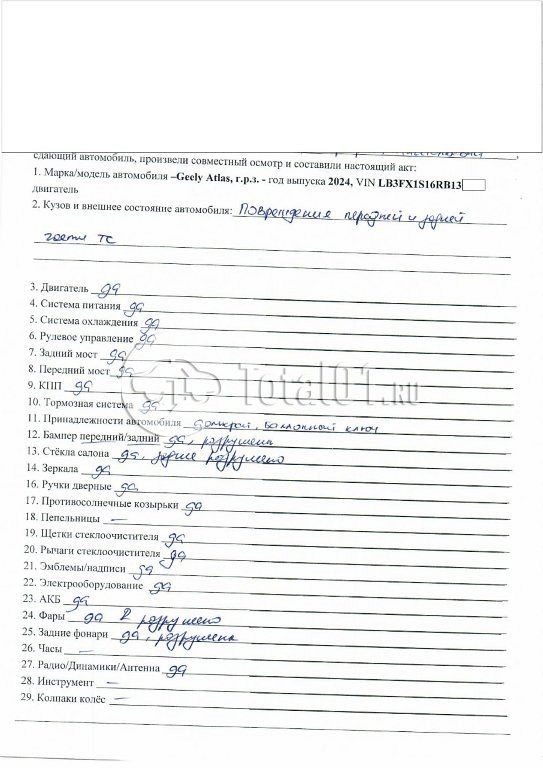 сдающий автомобиль, произвели совместный осмотр и составили настоящий акт:
1. Марка/модель автомобиля –Geely Atlas, г.р.з. - год выпуска 2024, VIN LB3FX1S16RB13
двигатель
2. Кузов и внешнее состояние автомобиля: Повреждения передней и задней
части ТС
3. Двигатель да
4. Система питания да
5. Система охлаждения да
6. Рулевое управление да
7. Задний мост да
8. Передний мост да
9. КПП да
10. Тормозная система да
11. Принадлежности автомобиля домкрат, баллонный ключ
12. Бампер передний/задний да, разрушены
13. Стёкла салона да, заднее разрушено
14. Зеркала да
16. Ручки дверные да
17. Противосолнечные козырьки да
18. Пепельницы —
19. Щетки стеклоочистителя да
20. Рычаги стеклоочистителя да
21. Эмблемы/надписи да
22. Электрооборудование да
23. АКБ да
24. Фары да 2 разрушено
25. Задние фонари да, разрушены
26. Часы —
27. Радио/Динамики/Антенна да
28. Инструмент —
29. Колпаки колёс —
Total01.RU